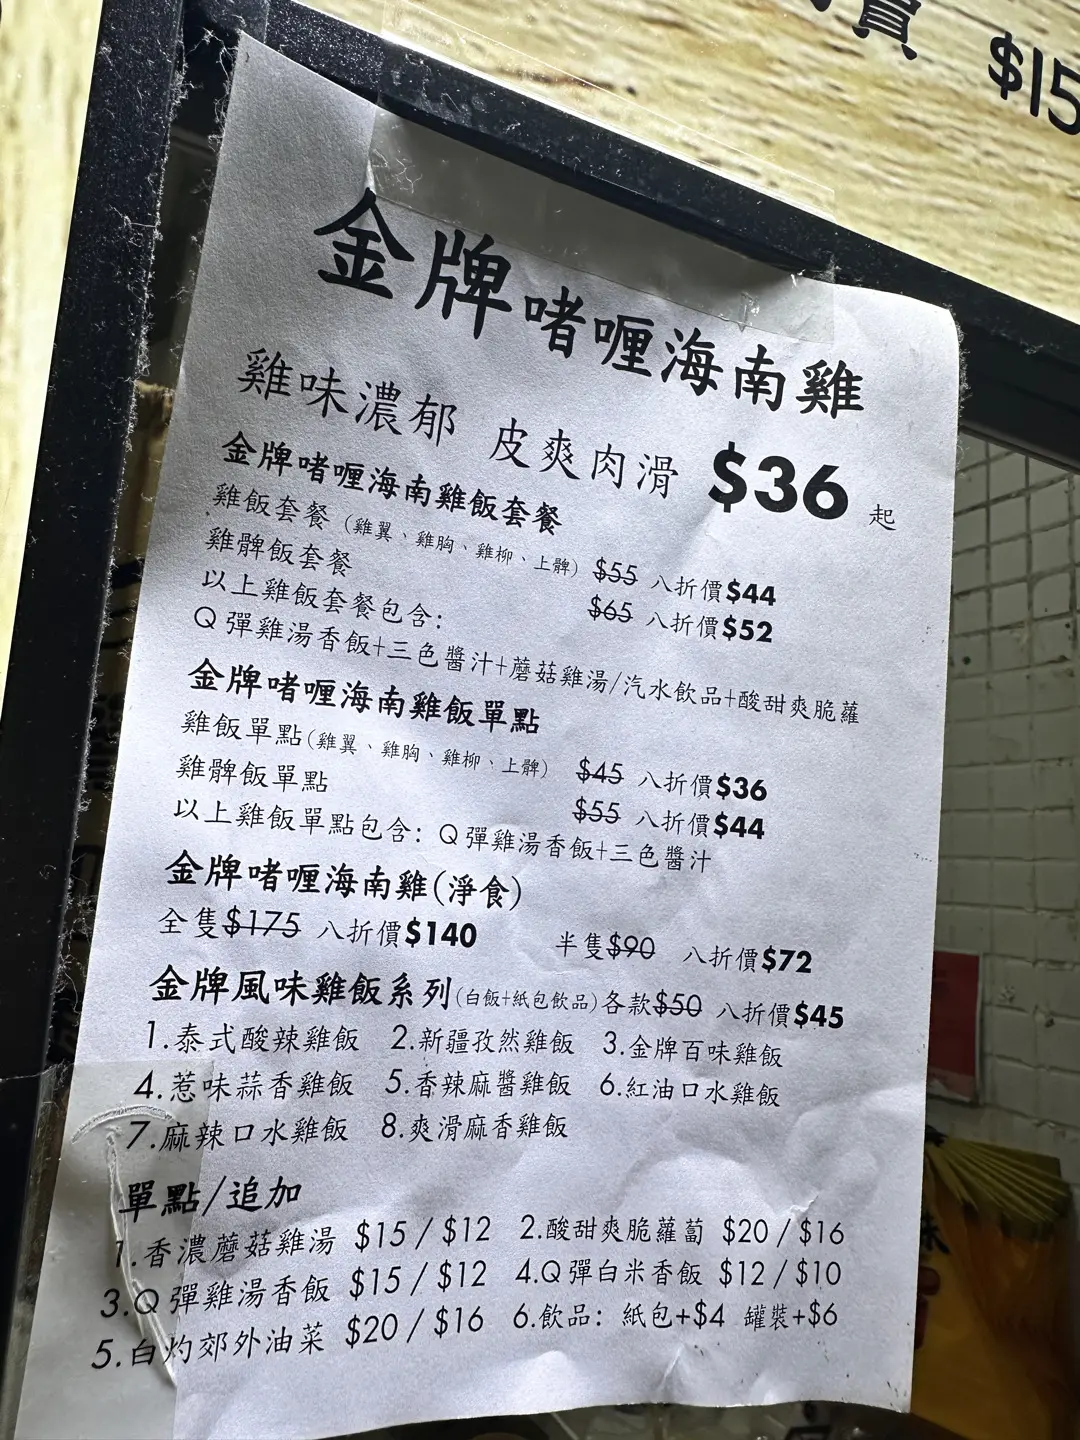 賣 $15
金牌啫喱海南雞
雞味濃郁 皮爽肉滑 $36 起
金牌啫喱海南雞飯套餐
雞飯套餐 (雞翼、雞胸、雞柳、上髀) $55 八折價$44
雞髀飯套餐 $65 八折價$52
以上雞飯套餐包含:
Q彈雞湯香飯+三色醬汁+蘑菇雞湯/汽水飲品+酸甜爽脆蘿
金牌啫喱海南雞飯單點
雞飯單點(雞翼、雞胸、雞柳、上髀) $45 八折價$36
雞髀飯單點 $55 八折價$44
以上雞飯單點包含: Q彈雞湯香飯+三色醬汁
金牌啫喱海南雞(淨食)
全隻$175 八折價$140 半隻$90 八折價$72
金牌風味雞飯系列(白飯+紙包飲品)各款$50 八折價$45
1.泰式酸辣雞飯 2.新疆孜然雞飯 3.金牌百味雞飯
4.惹味蒜香雞飯 5.香辣麻醬雞飯 6.紅油口水雞飯
7.麻辣口水雞飯 8.爽滑麻香雞飯
單點/追加
1.香濃蘑菇雞湯 $15 / $12 2.酸甜爽脆蘿蔔 $20 / $16
3.Q彈雞湯香飯 $15 / $12 4.Q彈白米香飯 $12 / $10
5.白灼郊外油菜 $20 / $16 6.飲品: 紙包+$4 罐裝+$6